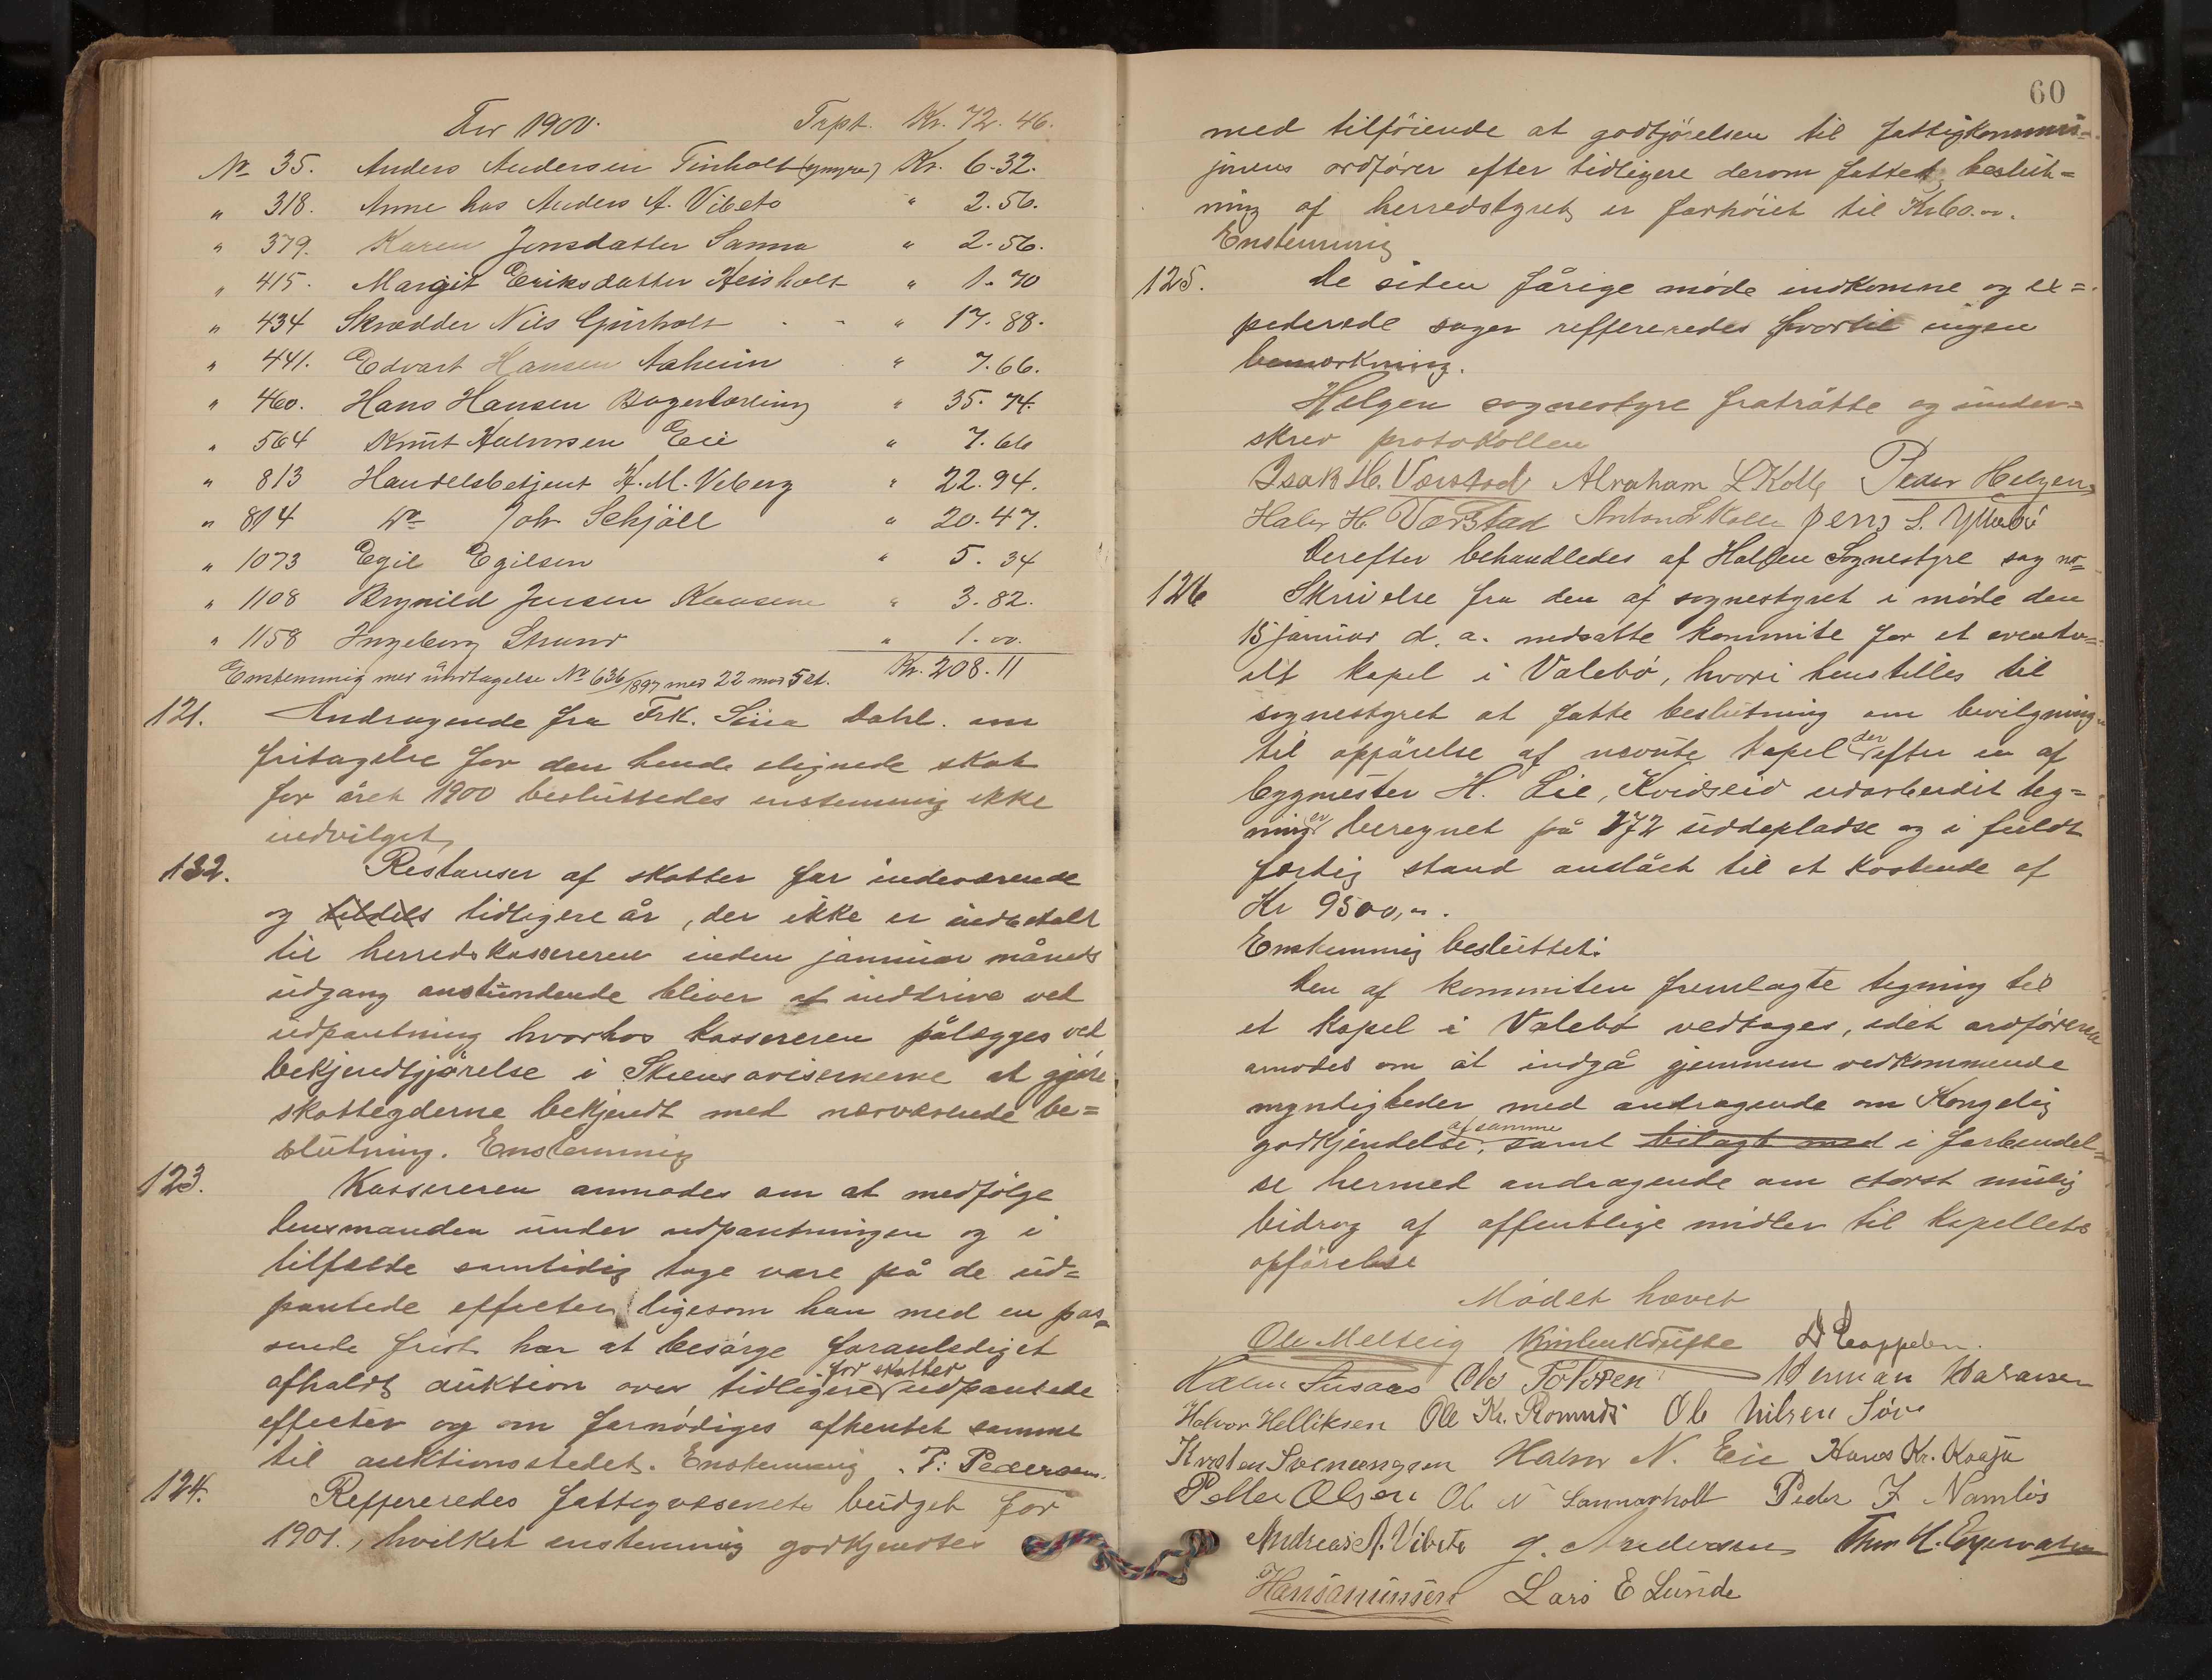 For 1900. Trpt. Kr. 72.46.
No 35. Anders Andersen Tinholt (yngre) Kr. 6.32.
" 318. Anne hos Anders A. Vibeto " 2.56.
" 379. Karen Jonsdatter Sanna " 2.56.
" 415. Margit Eriksdatter Heisholt " 1.70
" 434 Skrædder Nils Gjirholt - - " 17.88.
" 441. Edvart Hansen Aaheim " 7.66.
" 460. Hans Hansen Bagerlærling " 35.74.
" 564 Knut Halvorsen Eie " 7.66
" 813 Handelsbetjent H. M. Veberg " 22.94.
" 814 Do Joh. Schjöll " 20.47.
" 1073 Egil Egilsen " 5.34
" 1108 Brynild Jensen Kaasene " 3.82.
" 1158 Ingeborg Strand " 1.00.
Enstemmig med undtagelse No 636/1897 med 22 mod 5 st. Kr. 208.11
121. Andragende fra Frk. Sina Dahl. om
fritagelse for den hende ilignede skat
for året 1900 besluttedes enstemmig ikke
indvilget
122. Restanser af skatter for indeværende
og tildels tidligere år, der ikke er indbetalt
til herredskassereren inden januar måneds
udgang anstundende bliver at inddrive ved
udpantning hvorhos kassereren pålægges ved
bekjendtgjørelse i Skiensaviserne at gjøre
skatteyderne bekjendt med nærværende be=
slutning. Enstemmig
123. Kassereren anmodes om at medfölge
lensmanden under udpantningen og i
tilfælde samtidig tage vare på de ud=
pantede effecter ligesom han med en pas=
sende frist har at besørge foranlediget
afholdt auktion over tidligere for skatter udpantede
effecter og om fornødiges afhentet samme
til auktionsstedet. Enstemmig. P. Pedersen.
124. Reffereredes fattigvæsenets budget for
1901., hvilket enstemmig godkjendtes
60
med tilföiende at godtjörelsen til fattigkommis-
jonens ordfører efter tidligere derom fattet beslut=
ning af herredstyret er forhöiet til Kr 60.00.
Enstemmig
125. De siden forrige møde indkomne og ex=
pederede sager reffereredes hvortil ingen
bemærkning.
Helgen sognestyre fratrådte og under=
skrev protokollen
Isak H. Værstad Abraham L Kolle Peder Helgen
Halv H Værstad Anton L Kolle Jens S. Yttrebö
Derefter behandledes af Hollen Sognestyre sag no=
126 Skrivelse fra den af sognestyret i møde den
15 januar d. a. nedsatte kommite for et eventu=
elt kapel i Valebø, hvori henstilles til
sognestyret at fatte beslutning om bevilgning
til opförelse af nævnte kapel der efter en af
bygmester H. Lie, Kvidseid udarbeidet teg=
ning er beregnet på 272 siddepladse og i fuldt
færdig stand anslået til et kostende af
Kr 9500,00.
Enstemmig besluttet:
Den af kommiten fremlagte tegning til
et kapel i Valebø vedtages, idet ordføreren
anmodes om at indgå gjennem vedkommende
myndigheder med andragende om Kongelig
godkjendelse af samme, samt bilagt med i forbindel=
se hermed andragende om størst mulig
bidrag af offentlige midler til kapellets
opførelse
Mødet hævet
Ole Melteig D Cappelen.
Halvor Susaas Ole Tofsren Herman Halvorsen
Halvor Helliksen Ole Kr. Romnæs Ole Nilsen Søve
Kristen Svenungsen Halvor N. Eie Hans Kr. Kaasa
Petter Olsen Ole N Sannerholt Peder J Namløs
Andreas A. Vibeto G. Andersen
Hans Amunsen Lars E Lunde